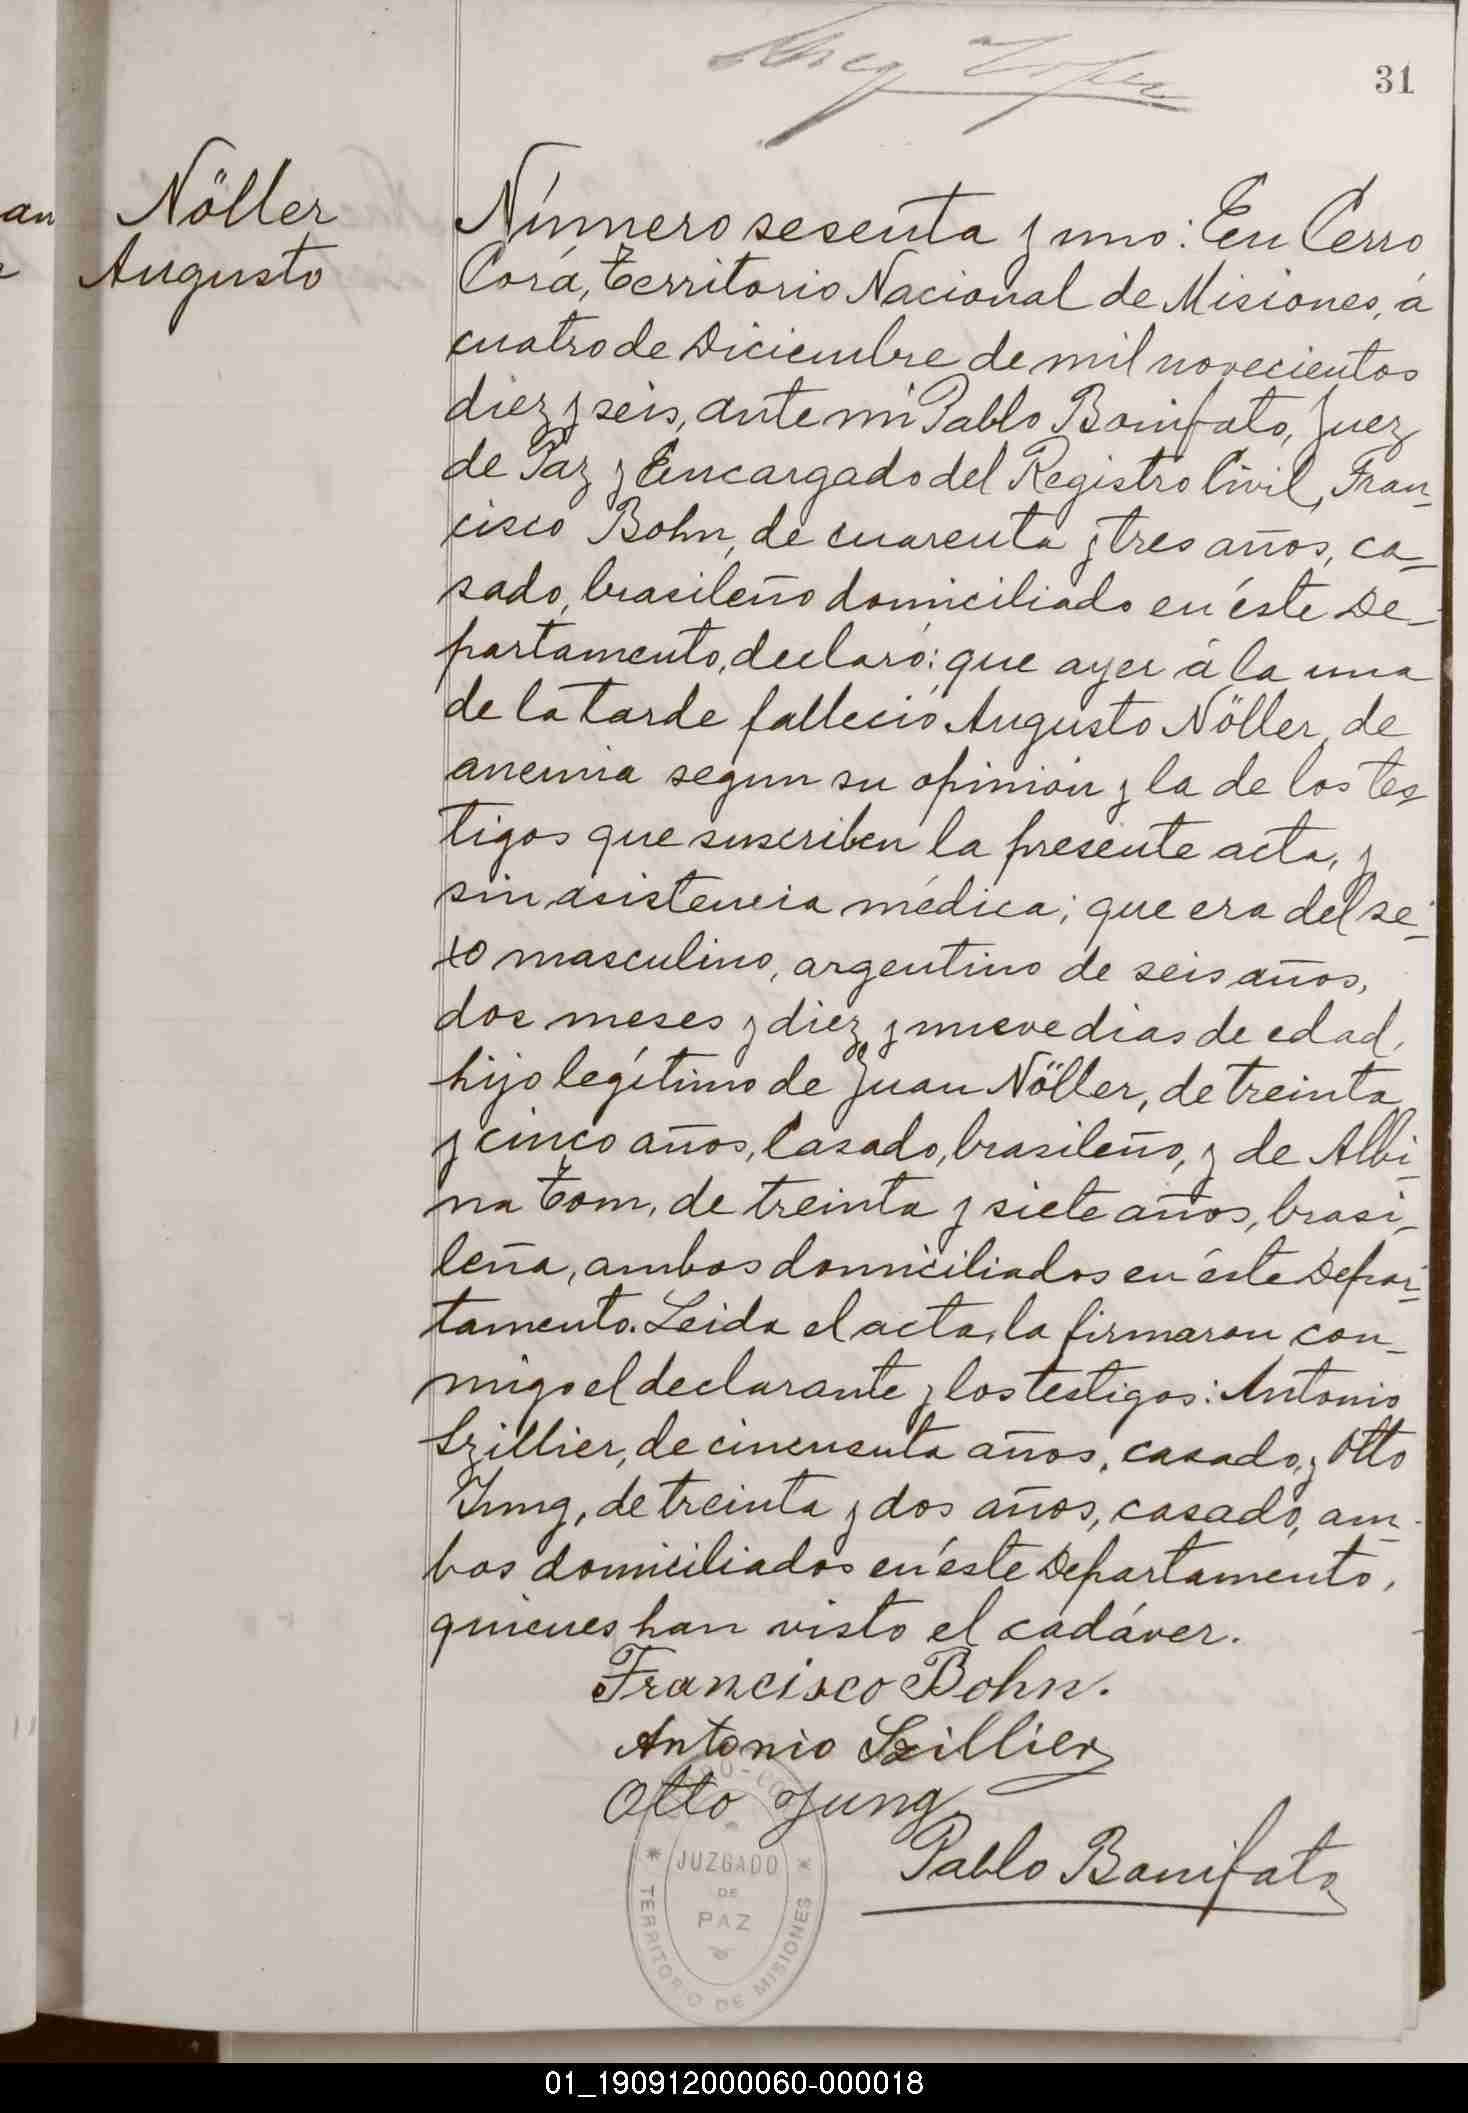 31
Nöller
Augusto
Número sesenta y uno: En Cerro
Corá, Territorio Nacional de Misiones, á
cuatro de Diciembre de mil novecientos
diez y seis, ante mi Pablo Bonifato, Juez
de Paz y Encargado del Registro Civil, Fran-
cisco Bohn, de cuarenta y tres años, ca-
sado, brasileño domiciliado en éste De-
partamento, declaró: que ayer á la una
de la tarde falleció Augusto Nöller, de
anemia segun su opinión y la de los tes
tigos que suscriben la presente acta, y
sin asistencia médica; que era del se-
xo masculino, argentino de seis años,
dos meses y diez y nueve dias de edad,
hijo legítimo de Juan Nöller, de treinta
y cinco años, casado, brasileño, y de Albi-
na Tom, de treinta y siete años, brasi-
leña, ambos domiciliados en éste Depar-
tamento. Leida el acta, la firmaron con-
migo el declarante y los testigos: Antonio
Szillier, de cincuenta años, casado, y Otto
Jung, de treinta y dos años, casado, am-
bos domiciliados en éste Departamento,
quienes han visto el cadáver.
Francisco Bohn.
Antonio Szillier
Otto Jung
Pablo Bonifato
JUZGADO
DE
PAZ
TERRITORIO DE MISIONES
01_190912000060-000018